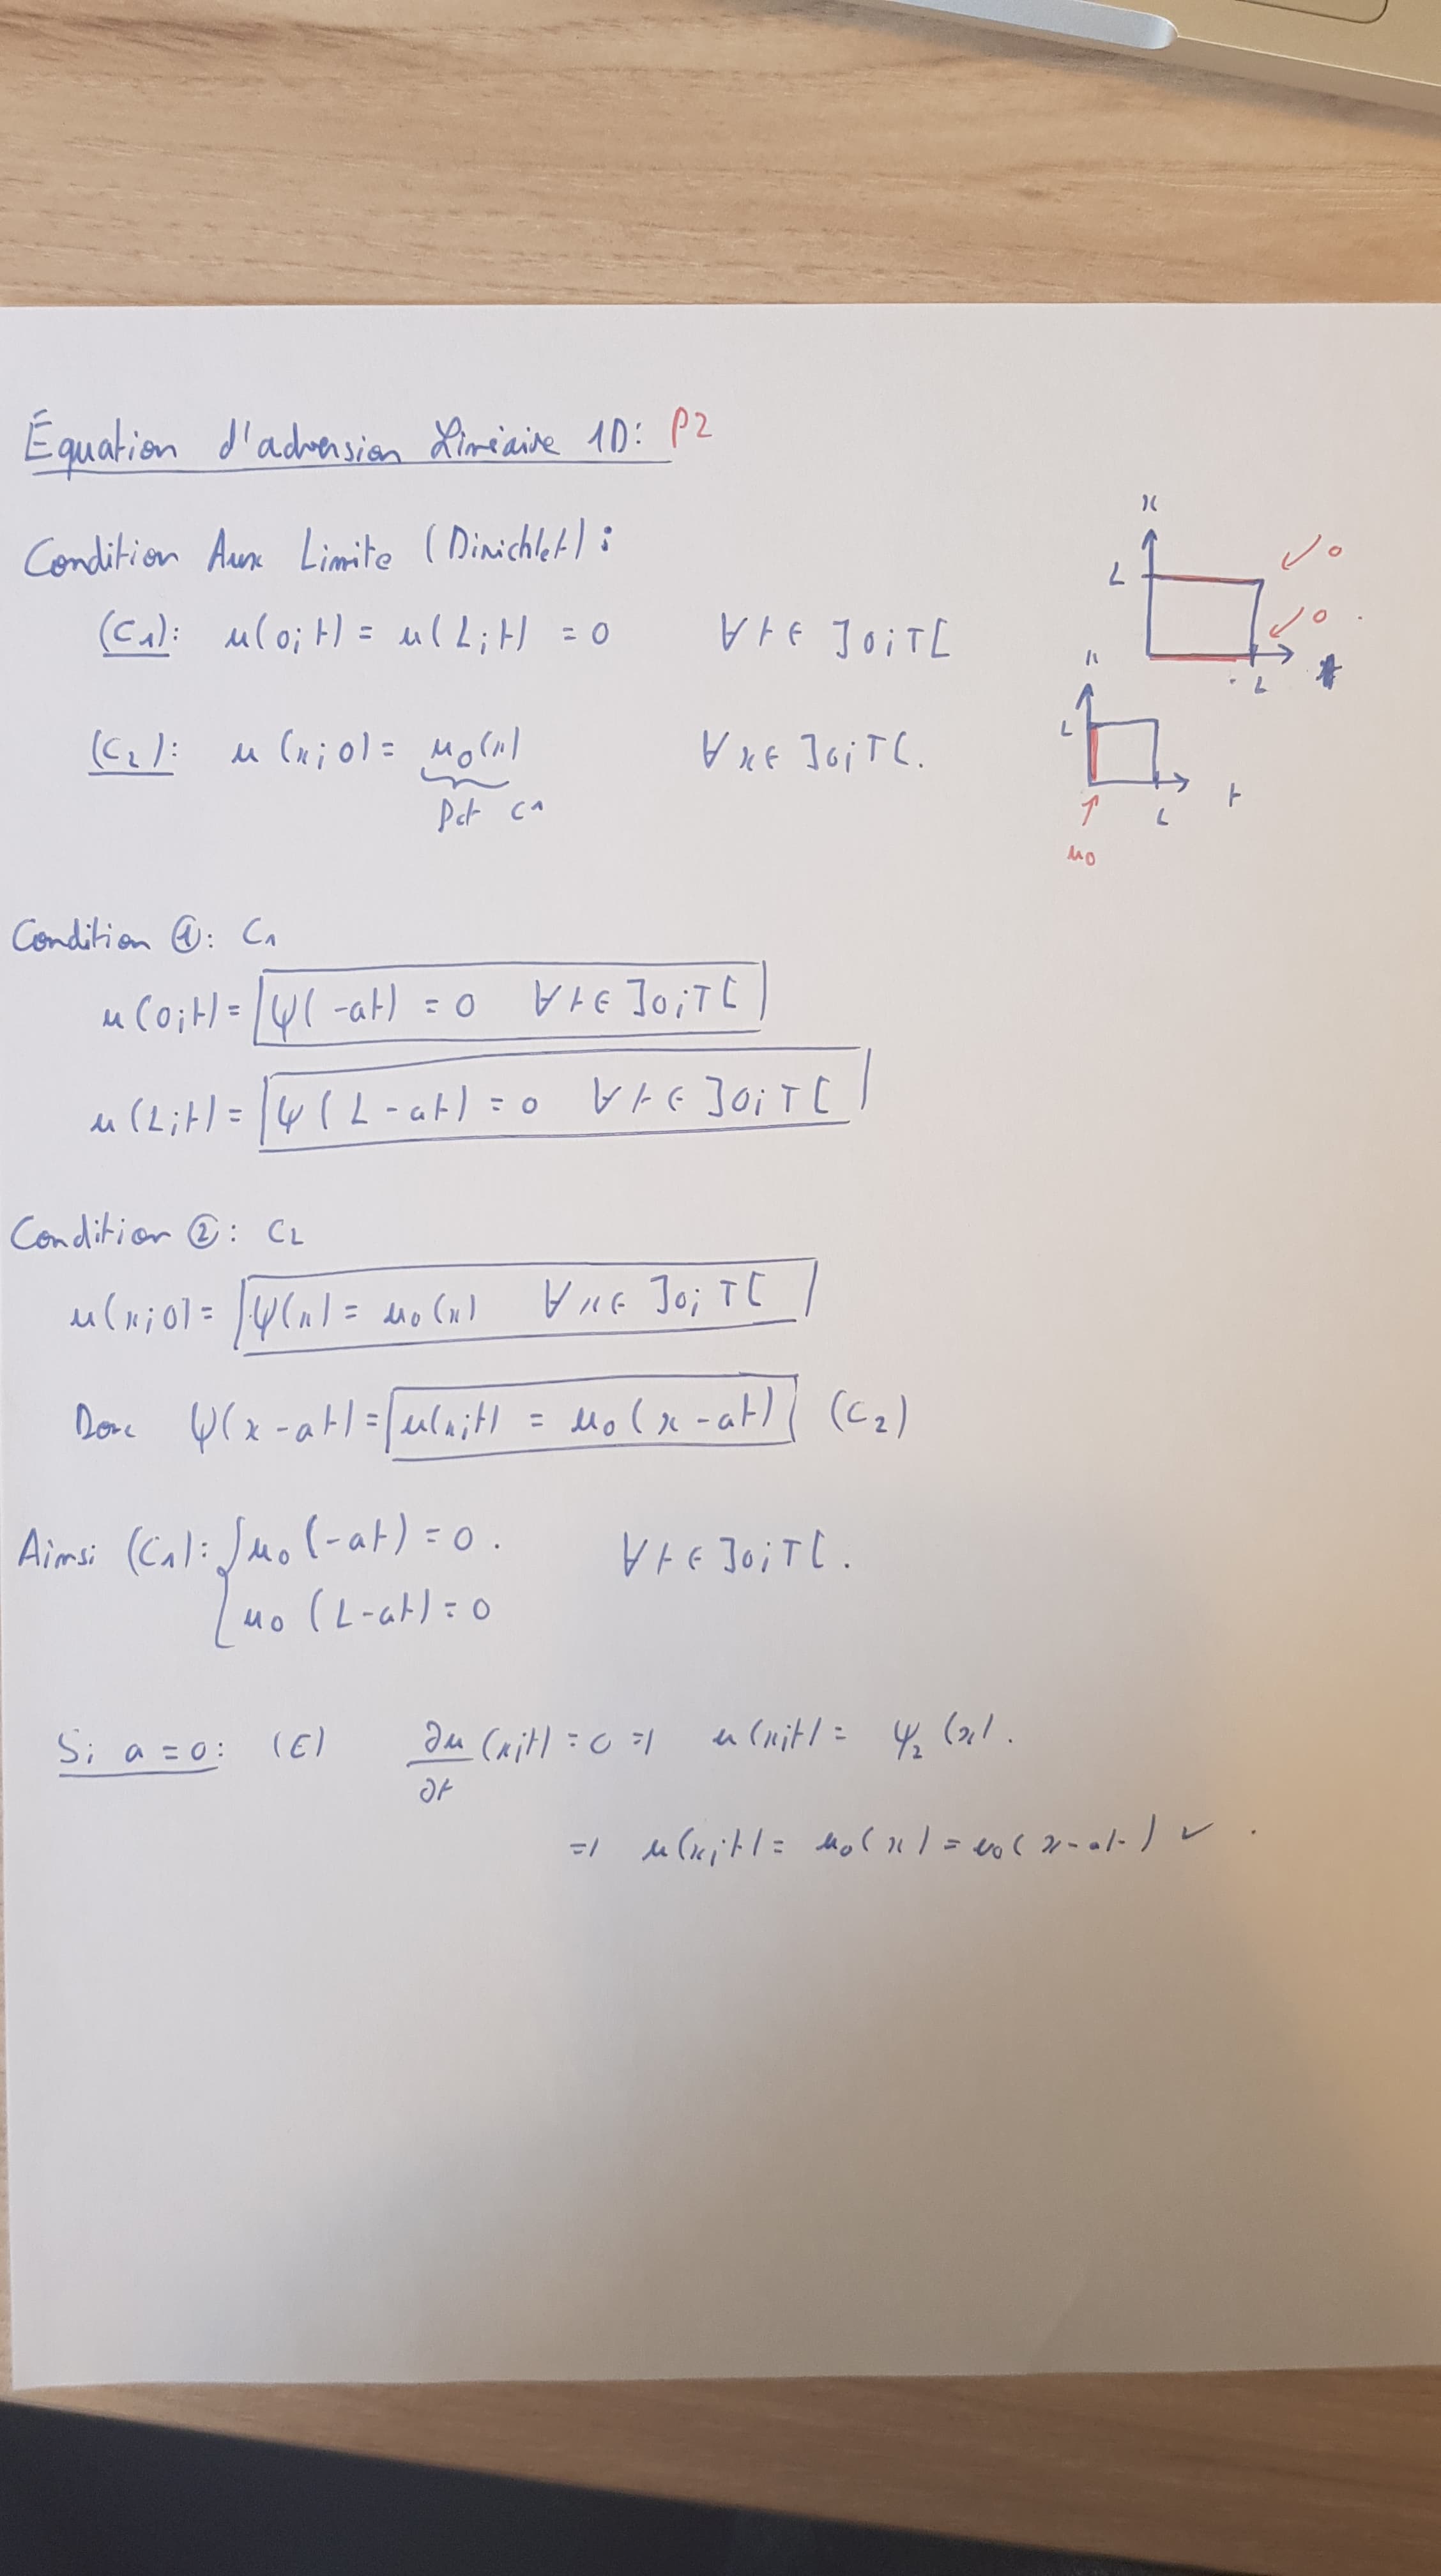 Équation d'advension Linéaire 1D: P2
Condition Aux Limite (Dirichlet):
(C1): u(0;t) = u(L;t) = 0 ∀t∈ ]0;T[
(C2): u(x;0) = u0(x) ∀x∈ ]0;T[.
fct C1
x
L
0
0
L
x
L
L
t
u0
Condition ①: C1
u(0;t) = ψ(-at) = 0 ∀t∈ ]0;T[
u(L;t) = ψ(L-at) = 0 ∀t∈ ]0;T[
Condition ②: C2
u(x;0) = ψ(x) = u0(x) ∀x∈ ]0;T[
Donc ψ(x-at) = u(x;t) = u0(x-at) (C2)
Ainsi (C1): { u0(-at) = 0. ∀t∈ ]0;T[.
u0(L-at) = 0
Si a=0: (E) ∂u/∂t (x;t) = 0 => u(x;t) = ψ2(x).
=> u(x;t) = u0(x) = u0(x-at) ✓.